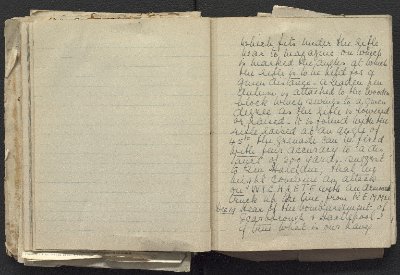 which fits under the rifle
near to magazine on which
is marked the angles at which
the rifle is to be held for a
given distance. A leaden pen
dulum is attached to the wooden
block which swings to a given
degree as the rifle is lowered
or raised. It is found with the
rifle raised at an angle of
45° the grenade can be fired
with fair accuracy to a dis
tance of 200 yards. Suggest
to Gen Haldane, that we
might combine an attack
on with an armoured
truck up the line, from KEMMEL
Hear of the bombardment of
Scarborough & Hartlepool &
if true what is our Navy